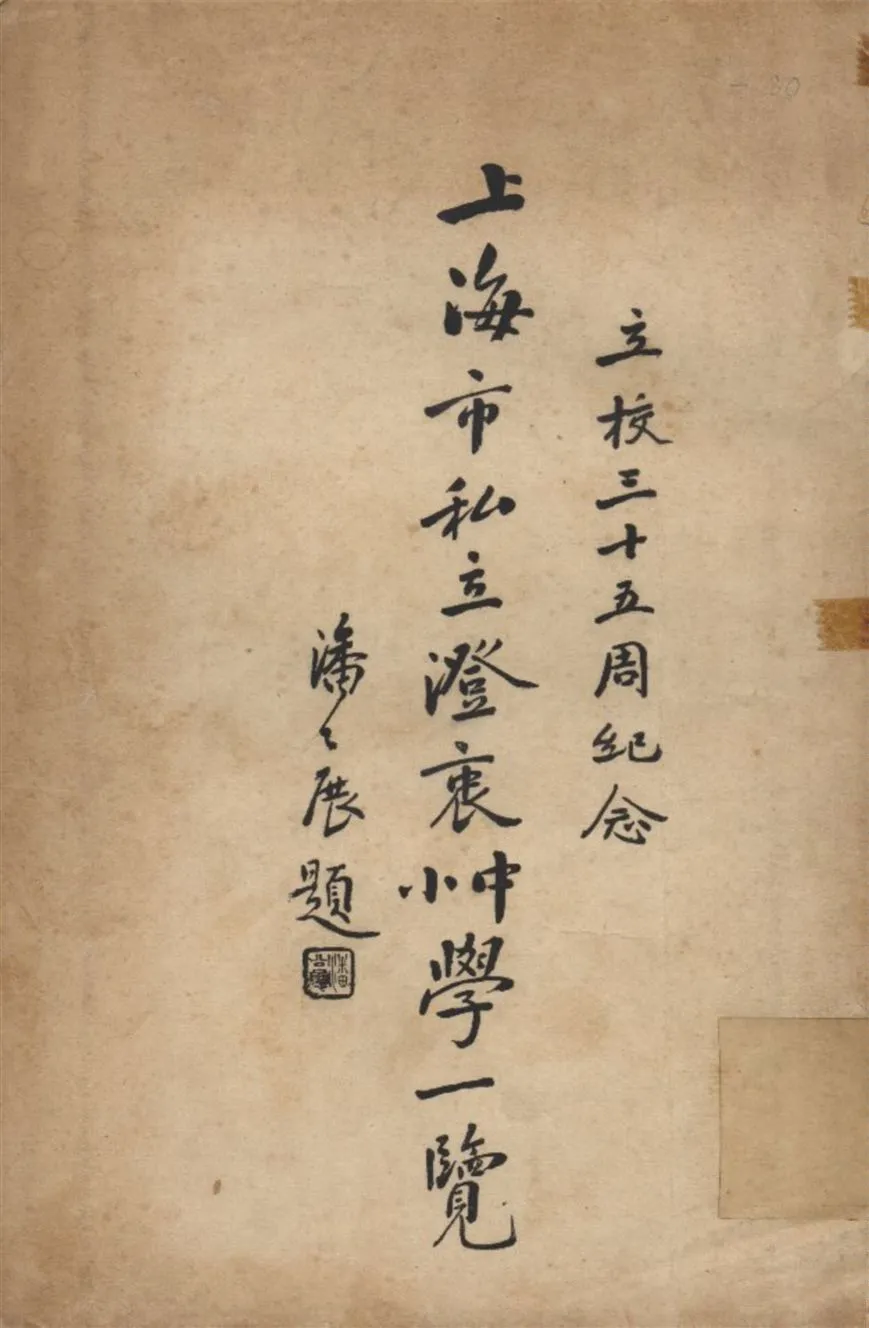 立校三十五周紀念
上海市私立澄衷中小學一覽
潘公展題